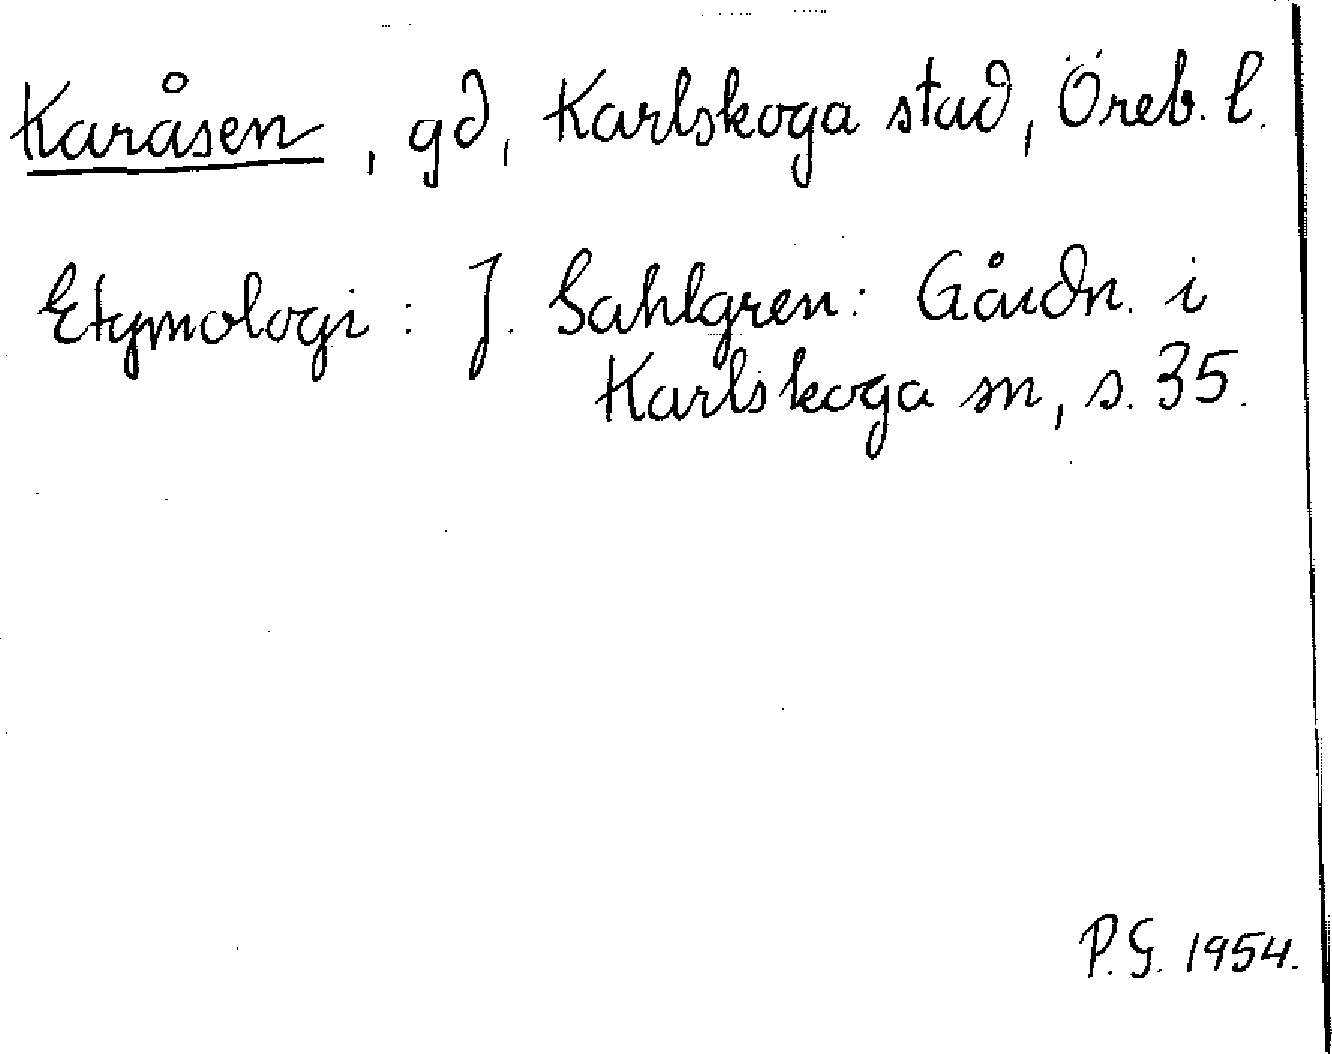 Karåsen, gd, Karlskoga stad, Öreb. l.
Etymologi: J. Sahlgren: Gårdn. i
Karlskoga sn, s. 35.
P.G. 1954.